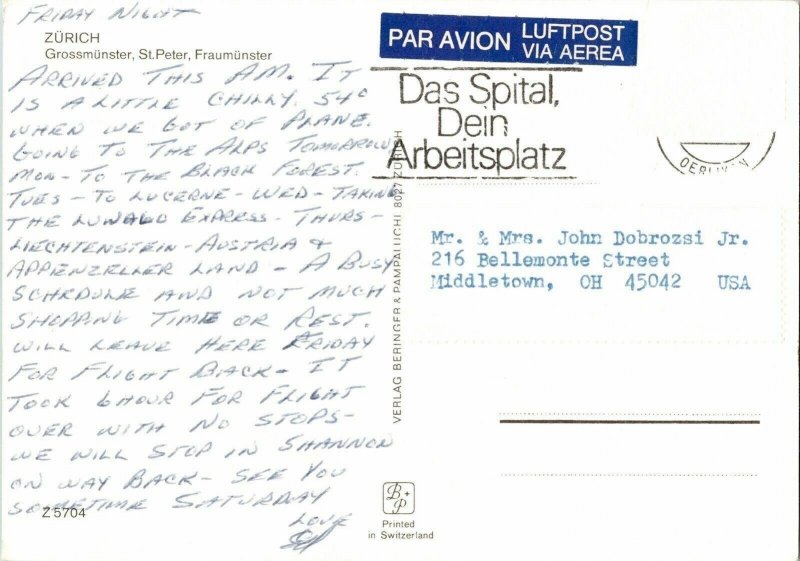 FRIDAY NIGHT
ZÜRICH
Grossmünster, St.Peter, Fraumünster
ARRIVED THIS AM. IT
IS A LITTLE CHILLY. 54°
WHEN WE GOT OF PLANE.
GOING TO THE ALPS TOMORROW
MON - TO THE BLACK FOREST.
TUES - TO LUCERNE - WED - TAKING
THE EXPRESS - THURS -
LIECHTENSTEIN - AUSTRIA &
APPENZELLER LAND - A BUSY
SCHEDULE AND NOT MUCH
SHOPPING TIME OR REST.
WILL LEAVE HERE FRIDAY
FOR FLIGHT BACK - IT
TOOK 6 HOUR FOR FLIGHT
OVER WITH NO STOPS -
WE WILL STOP IN SHANNON
ON WAY BACK - SEE YOU
SOMETIME SATURDAY
LOVE
Z 5704
VERLAG BERINGER & PAMPALUCHI 8027 ZÜRICH
B+P
Printed
in Switzerland
PAR AVION LUFTPOST
VIA AEREA
Das Spital,
Dein
Arbeitsplatz
Mr. & Mrs. John Dobrozsi Jr.
216 Bellemonte Street
Middletown, OH 45042 USA